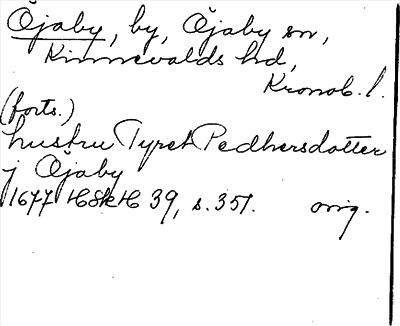 Öjaby, by, Öjaby sn,
Kinnevalds hd,
Kronob. l.
(forts.)
hustru Tyret Pedhersdotter
j Öjaby
1677 HSkH 39, s. 351. orig.